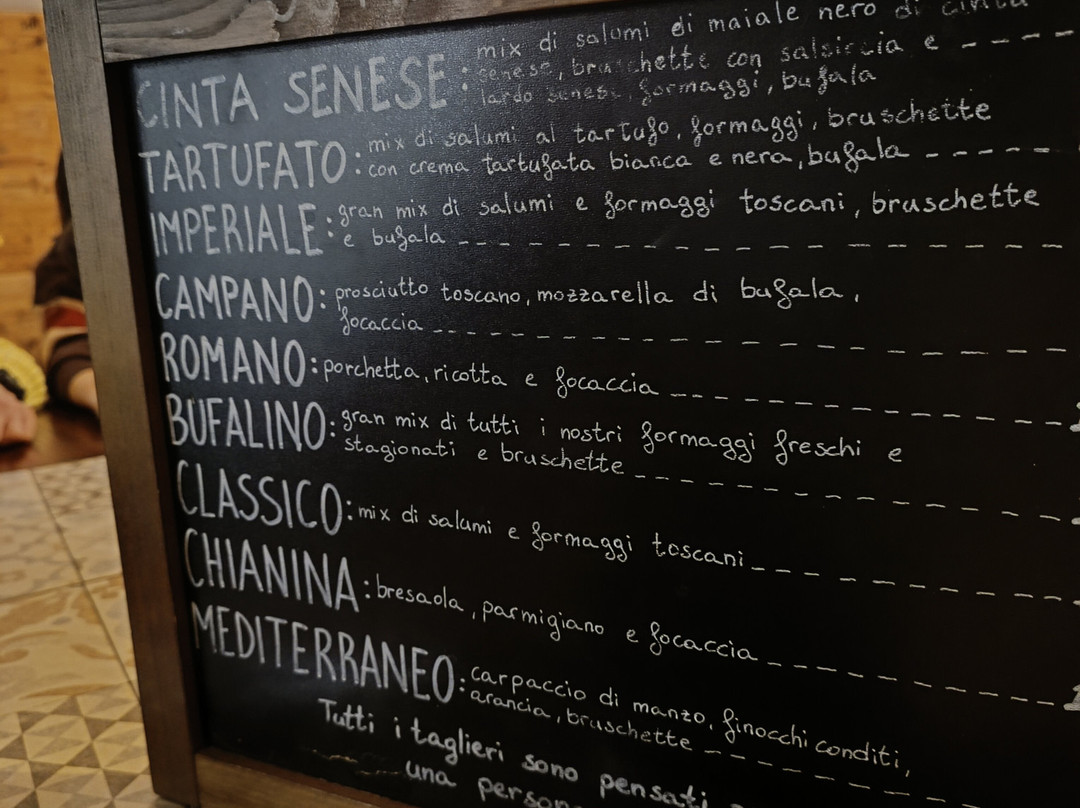 CINTA SENESE: mix di salumi di maiale nero di cinta
senese, bruschette con salsiccia e ----
lardo senese, formaggi, bufala
TARTUFATO: mix di salumi al tartufo, formaggi, bruschette
con crema tartufata bianca e nera, bufala -----
IMPERIALE: gran mix di salumi e formaggi toscani, bruschette
e bufala -----------------
CAMPANO: prosciutto toscano, mozzarella di bufala,
focaccia -----------------
ROMANO: porchetta, ricotta e focaccia ------------
BUFALINO: gran mix di tutti i nostri formaggi freschi e
stagionati e bruschette -------------
CLASSICO: mix di salumi e formaggi toscani ---------
CHIANINA: bresaola, parmigiano e focaccia ---------
MEDITERRANEO: carpaccio di manzo, finocchi conditi,
arancia, bruschette --------
Tutti i taglieri sono pensati
una